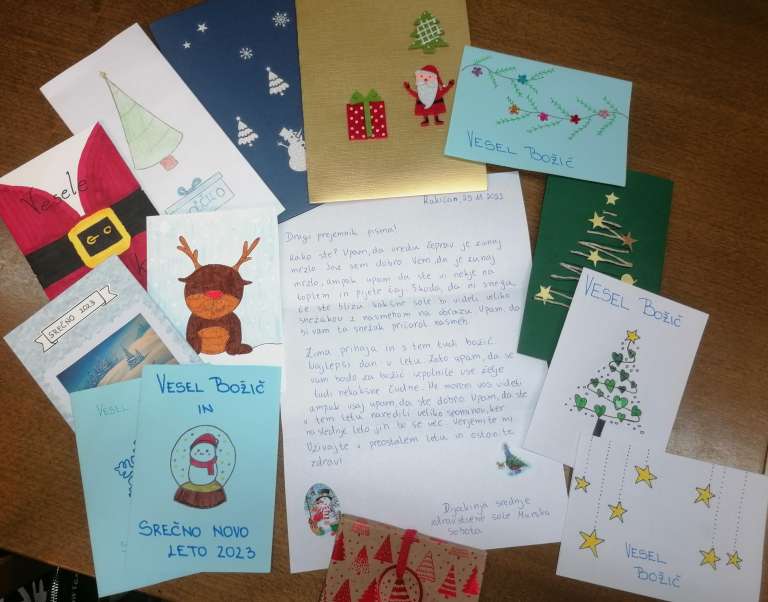 VESEL BOŽIČ
Vesele
SREČNO 2023
VESEL BOŽIČ
IN
SREČNO NOVO
LETO 2023
VESEL
Rakičan, 29.11.2022
Dragi prejemnik pisma!
Kako ste? Upam, da vredu čeprav je zunaj
mrzlo. Jaz sem dobro. Vem da je zunaj
mrzlo, ampak upam da ste vi nekje na
toplem in pijete čaj. Škoda, da ni snega,
če ste blizu kakšne šole bi videli veliko
snežakov z nasmehom na obrazu. Upam, da
bi vam ta snežak pričaral nasmeh.
Zima prihaja in s tem tudi božič
najlepši dan v letu. Zato upam, da se
vam bodo za božič izpolnile vse želje
tudi nekakšne čudne. Ne morem vas videti
ampak vsaj upam, da ste dobro. Upam, da ste
v tem letu naredili veliko spominov, ker
naslednje leto jih bo še več. Verjemite mi.
Uživajte v preostalem letu in ostanite
zdravi
Dijakinja srednje
zdravstvene šole Murska
Sobota
VESEL BOŽIČ
VESEL
BOŽIČ